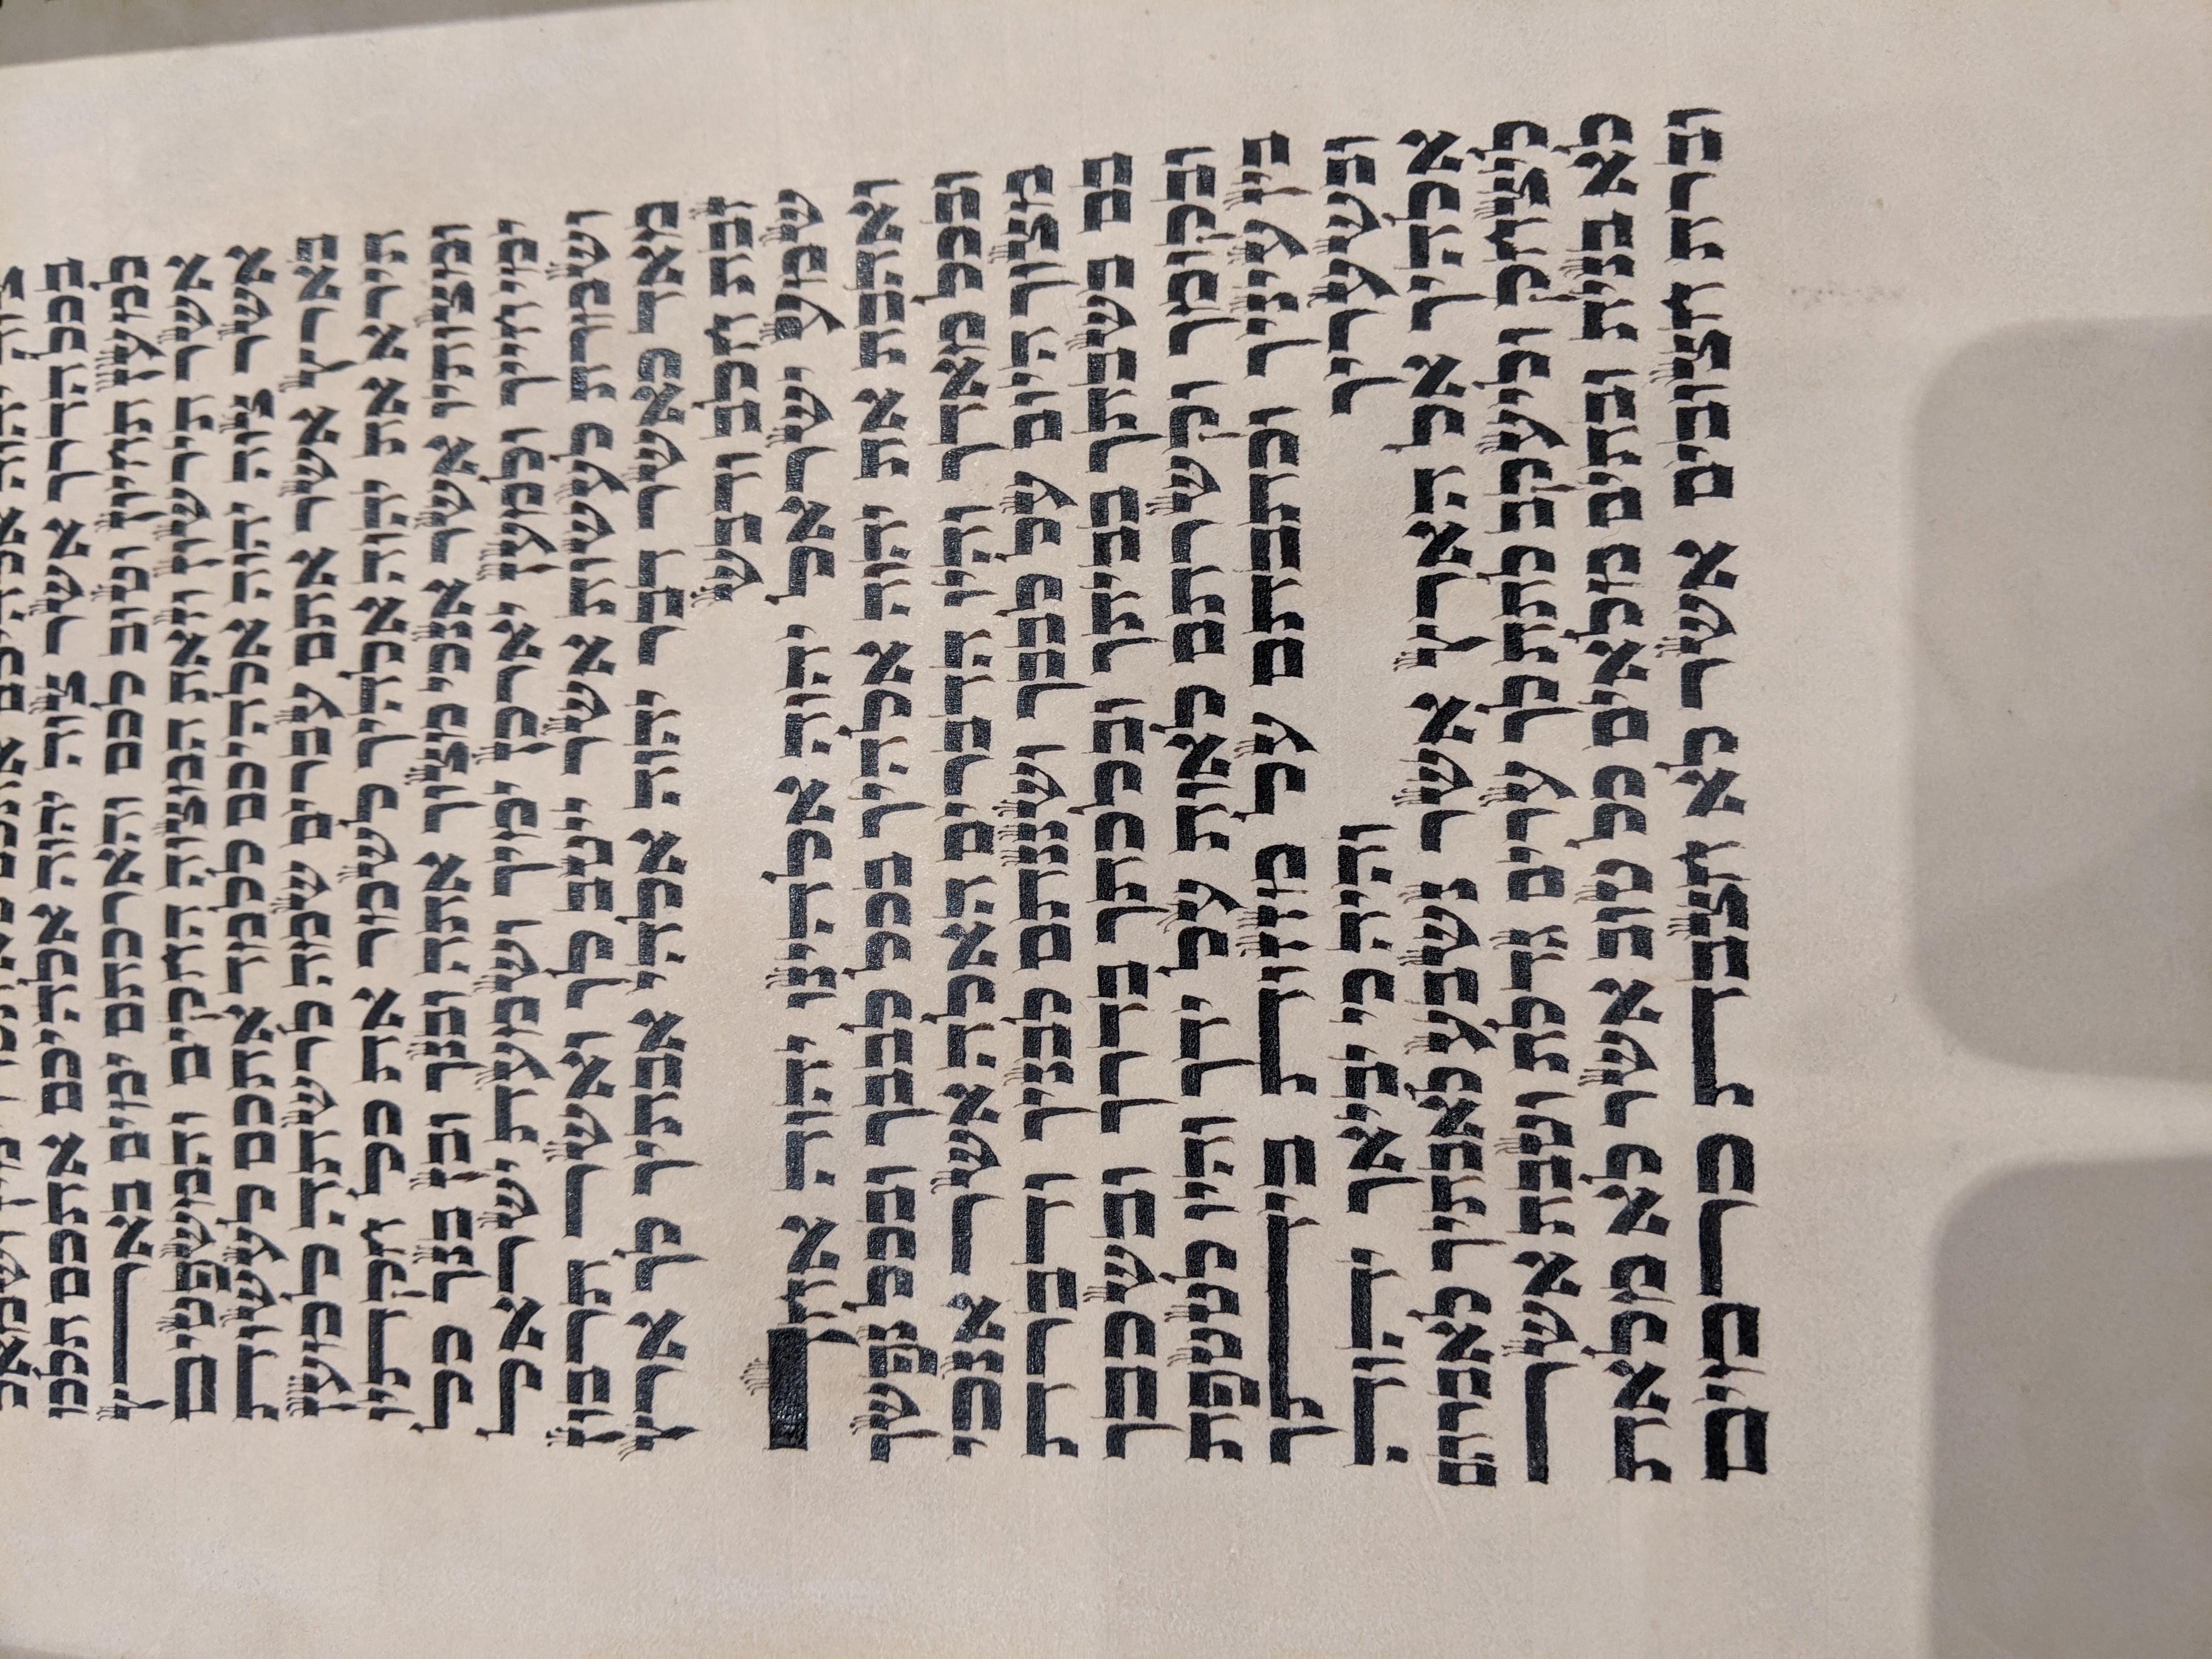 צוה יהוה אלהיכם אתכם לא תסרו ימין ושמאל
בכל הדרך אשר צוה יהוה אלהיכם אתכם תלכו
למען תחיון וטוב לכם והארכתם ימים בארץ
אשר תירשון וזאת המצוה החקים והמשפטים
אשר צוה יהוה אלהיכם ללמד אתכם לעשות
בארץ אשר אתם עברים שמה לרשתה למען
תירא את יהוה אלהיך לשמר את כל חקתיו
ומצותיו אשר אנכי מצוך אתה ובנך ובן בנך כל
ימי חייך ולמען יארכן ימיך ושמעת ישראל
ושמרת לעשות אשר ייטב לך ואשר תרבון
מאד כאשר דבר יהוה אלהי אבתיך לך ארץ
זבת חלב ודבש
שמע ישראל יהוה אלהינו יהוה אחד
ואהבת את יהוה אלהיך בכל לבבך ובכל נפשך
ובכל מאדך והיו הדברים האלה אשר אנכי
מצוך היום על לבבך ושננתם לבניך ודברת
בם בשבתך בביתך ובלכתך בדרך ובשכבך
ובקומך וקשרתם לאות על ידך והיו לטטפת
בין עיניך וכתבתם על מזוזת ביתך
ובשעריך והיה כי יביאך יהוה
אלהיך אל הארץ אשר נשבע לאבתיך לאברהם
ליצחק וליעקב לתת לך ערים גדלת וטבת אשר
לא בנית ובתים מלאים כל טוב אשר לא מלאת
וברת חצובים אשר לא חצבת כרמים